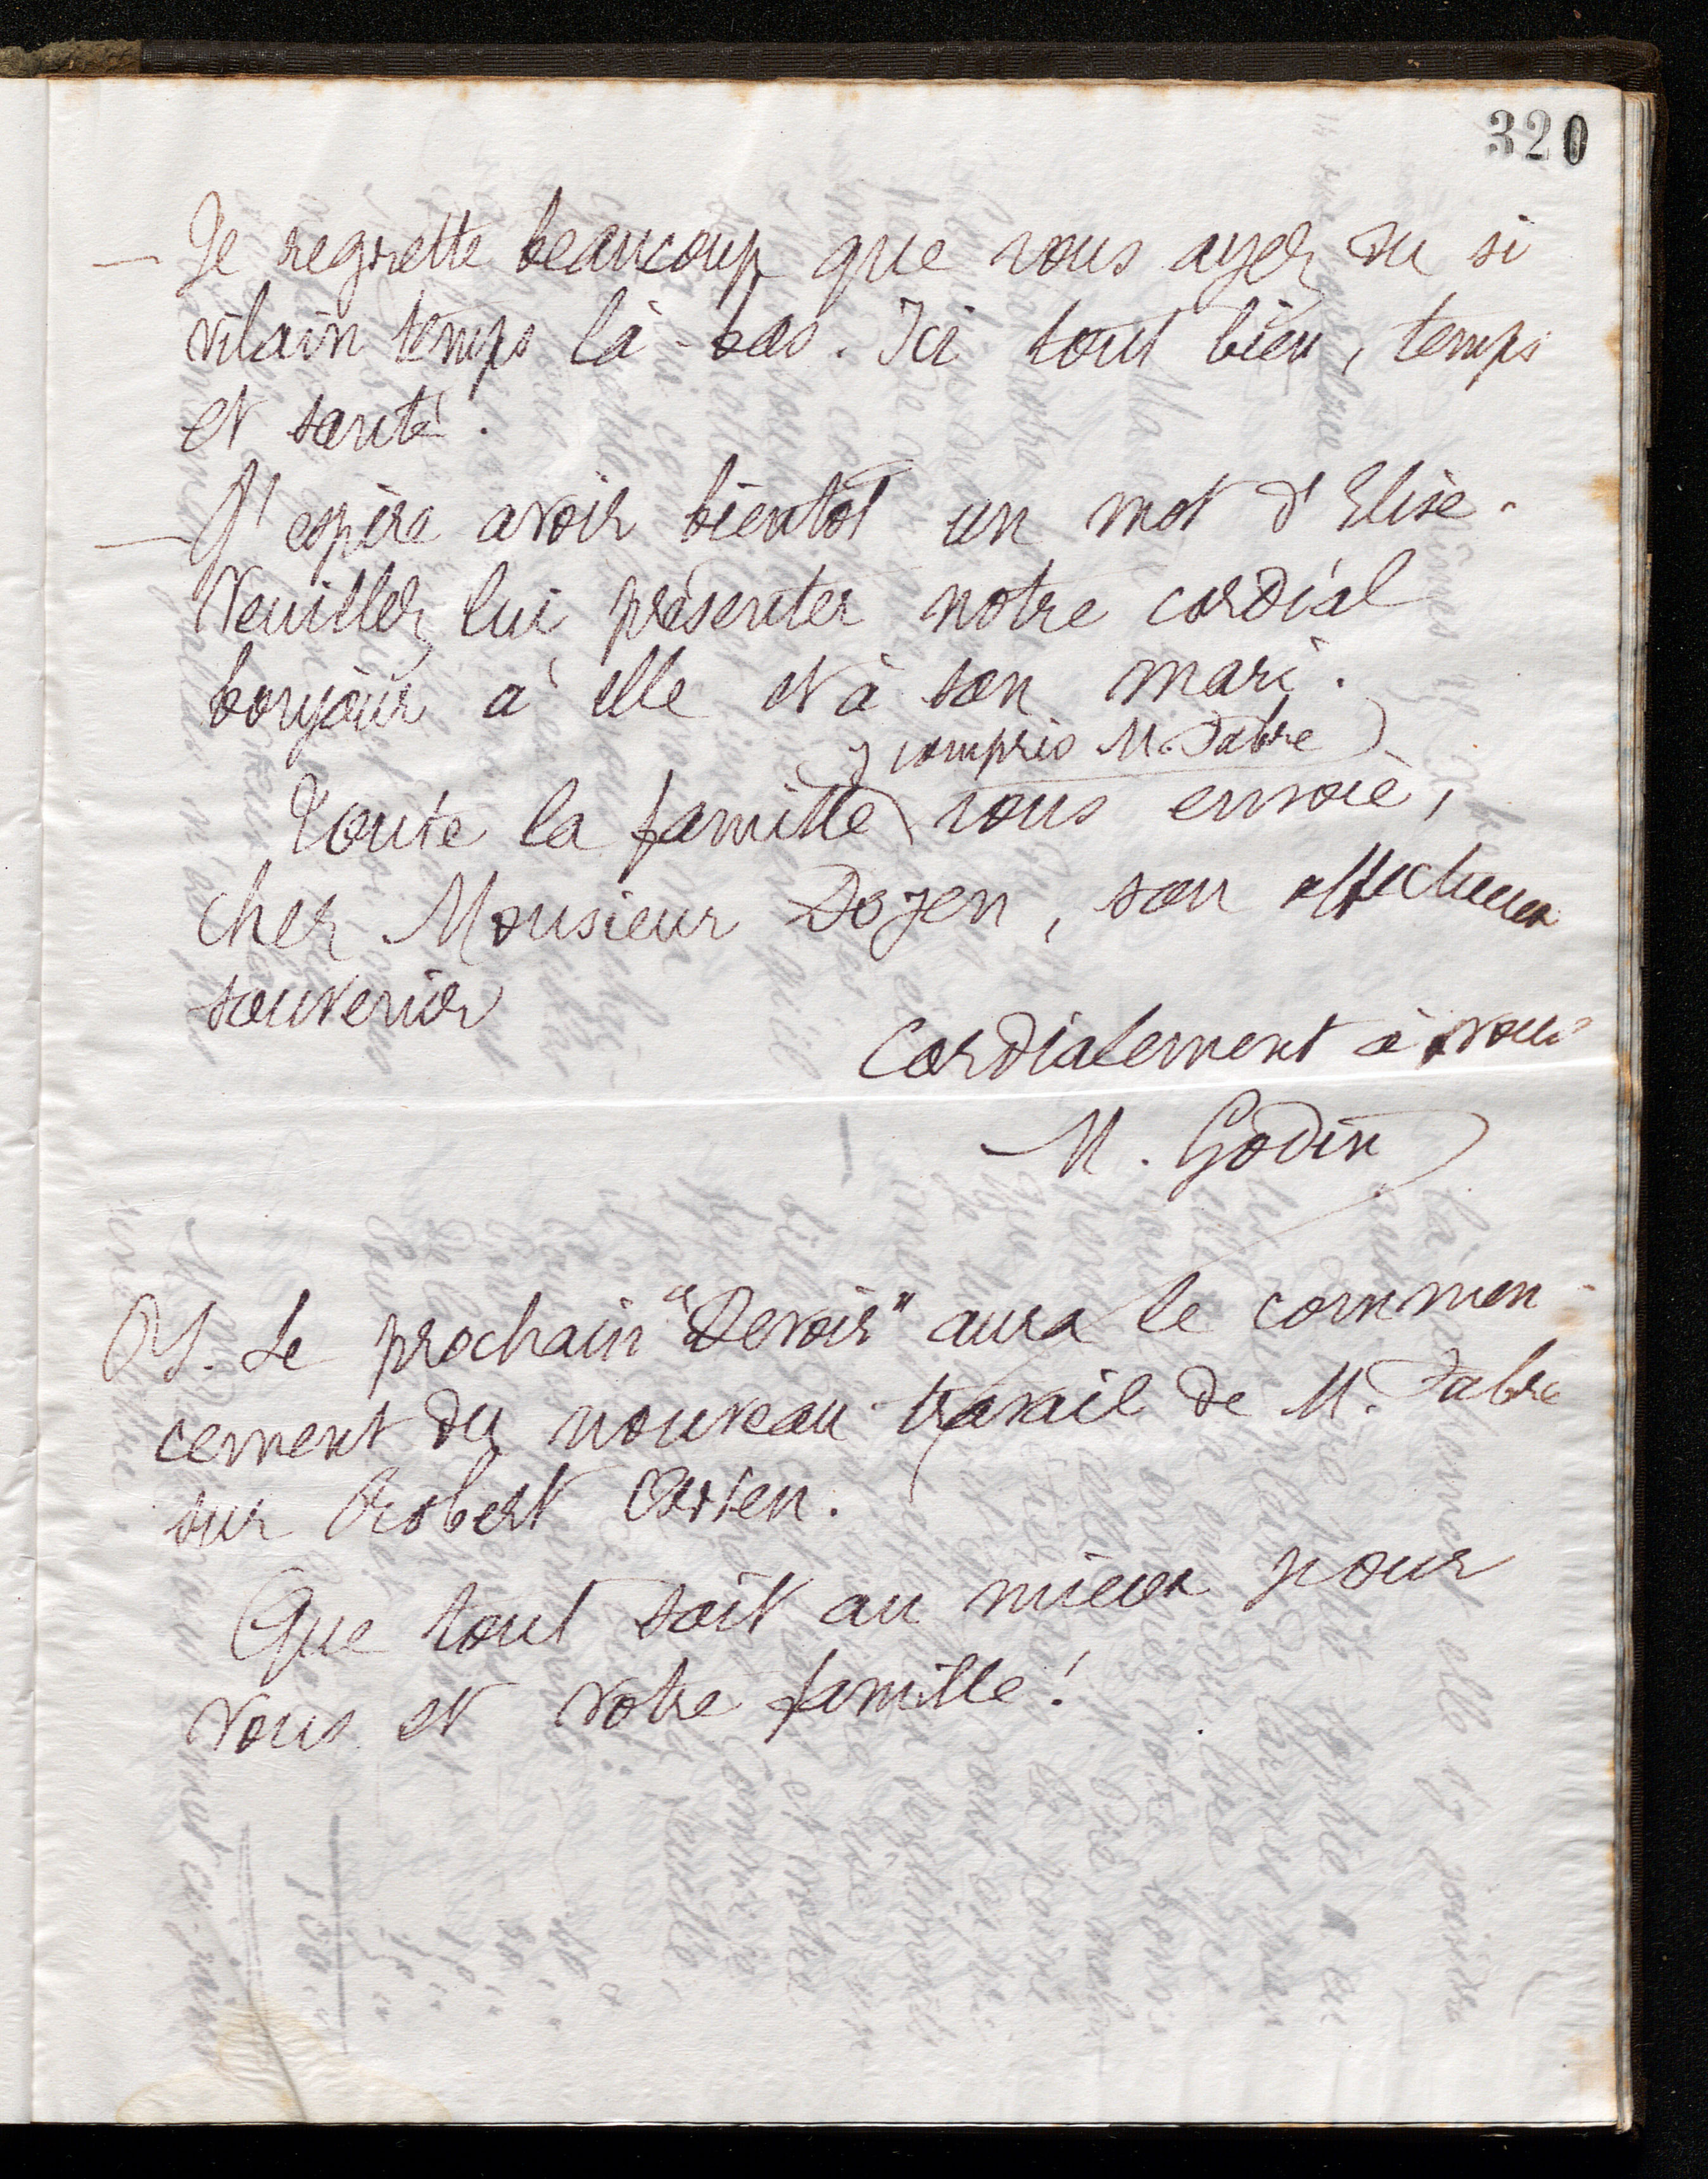 320
— Je regrette beaucoup que vous ayez eu si
vilain temps là-bas. Ici tout bien, temps
et santé.
— J'espère avoir bientôt un mot d'Elise.
Veuillez lui présenter notre cordial
bonjour à elle et à son mari.
y compris M. Fabre)
Toute la famille vous envoie,
cher Monsieur Doyen, son affectueux
souvenir
Cordialement à vous
M. Godin
PS. Le prochain "Devoir" aura le commen-
cement du nouveau travail de M. Fabre
sur Robert Owen.
Que tout soit au mieux pour
vous et votre famille!